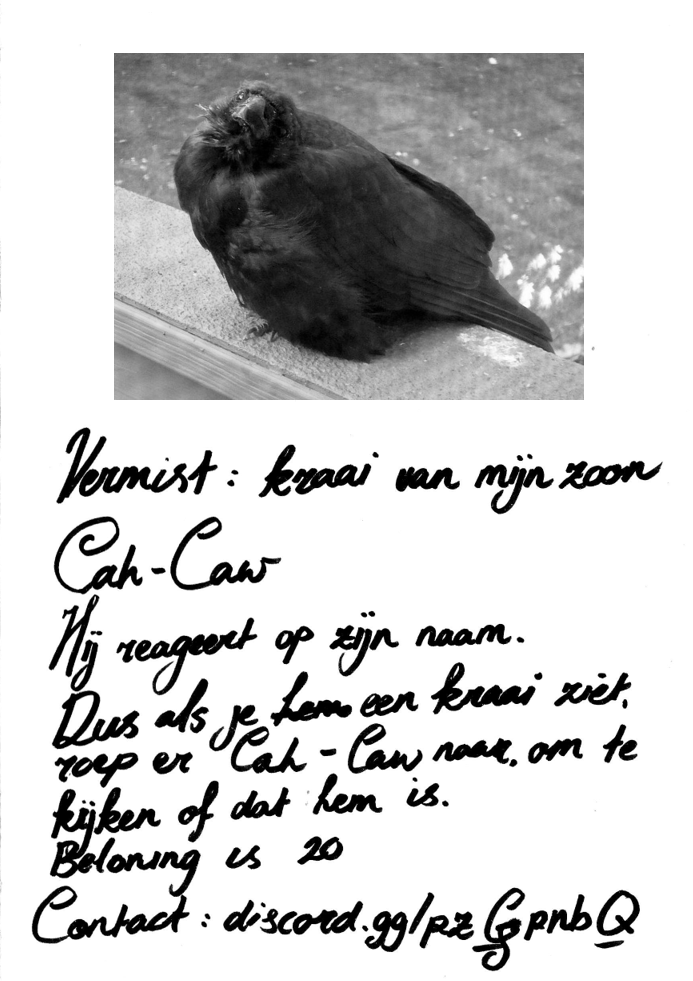 Vermist: kraai van mijn zoon
Cah-Caw
Hij reageert op zijn naam.
Dus als je hem een kraai ziet,
roep er Cah-Caw naar, om te
kijken of dat hem is.
Beloning is 20
Contact: discord.gg/pzGpnbQ